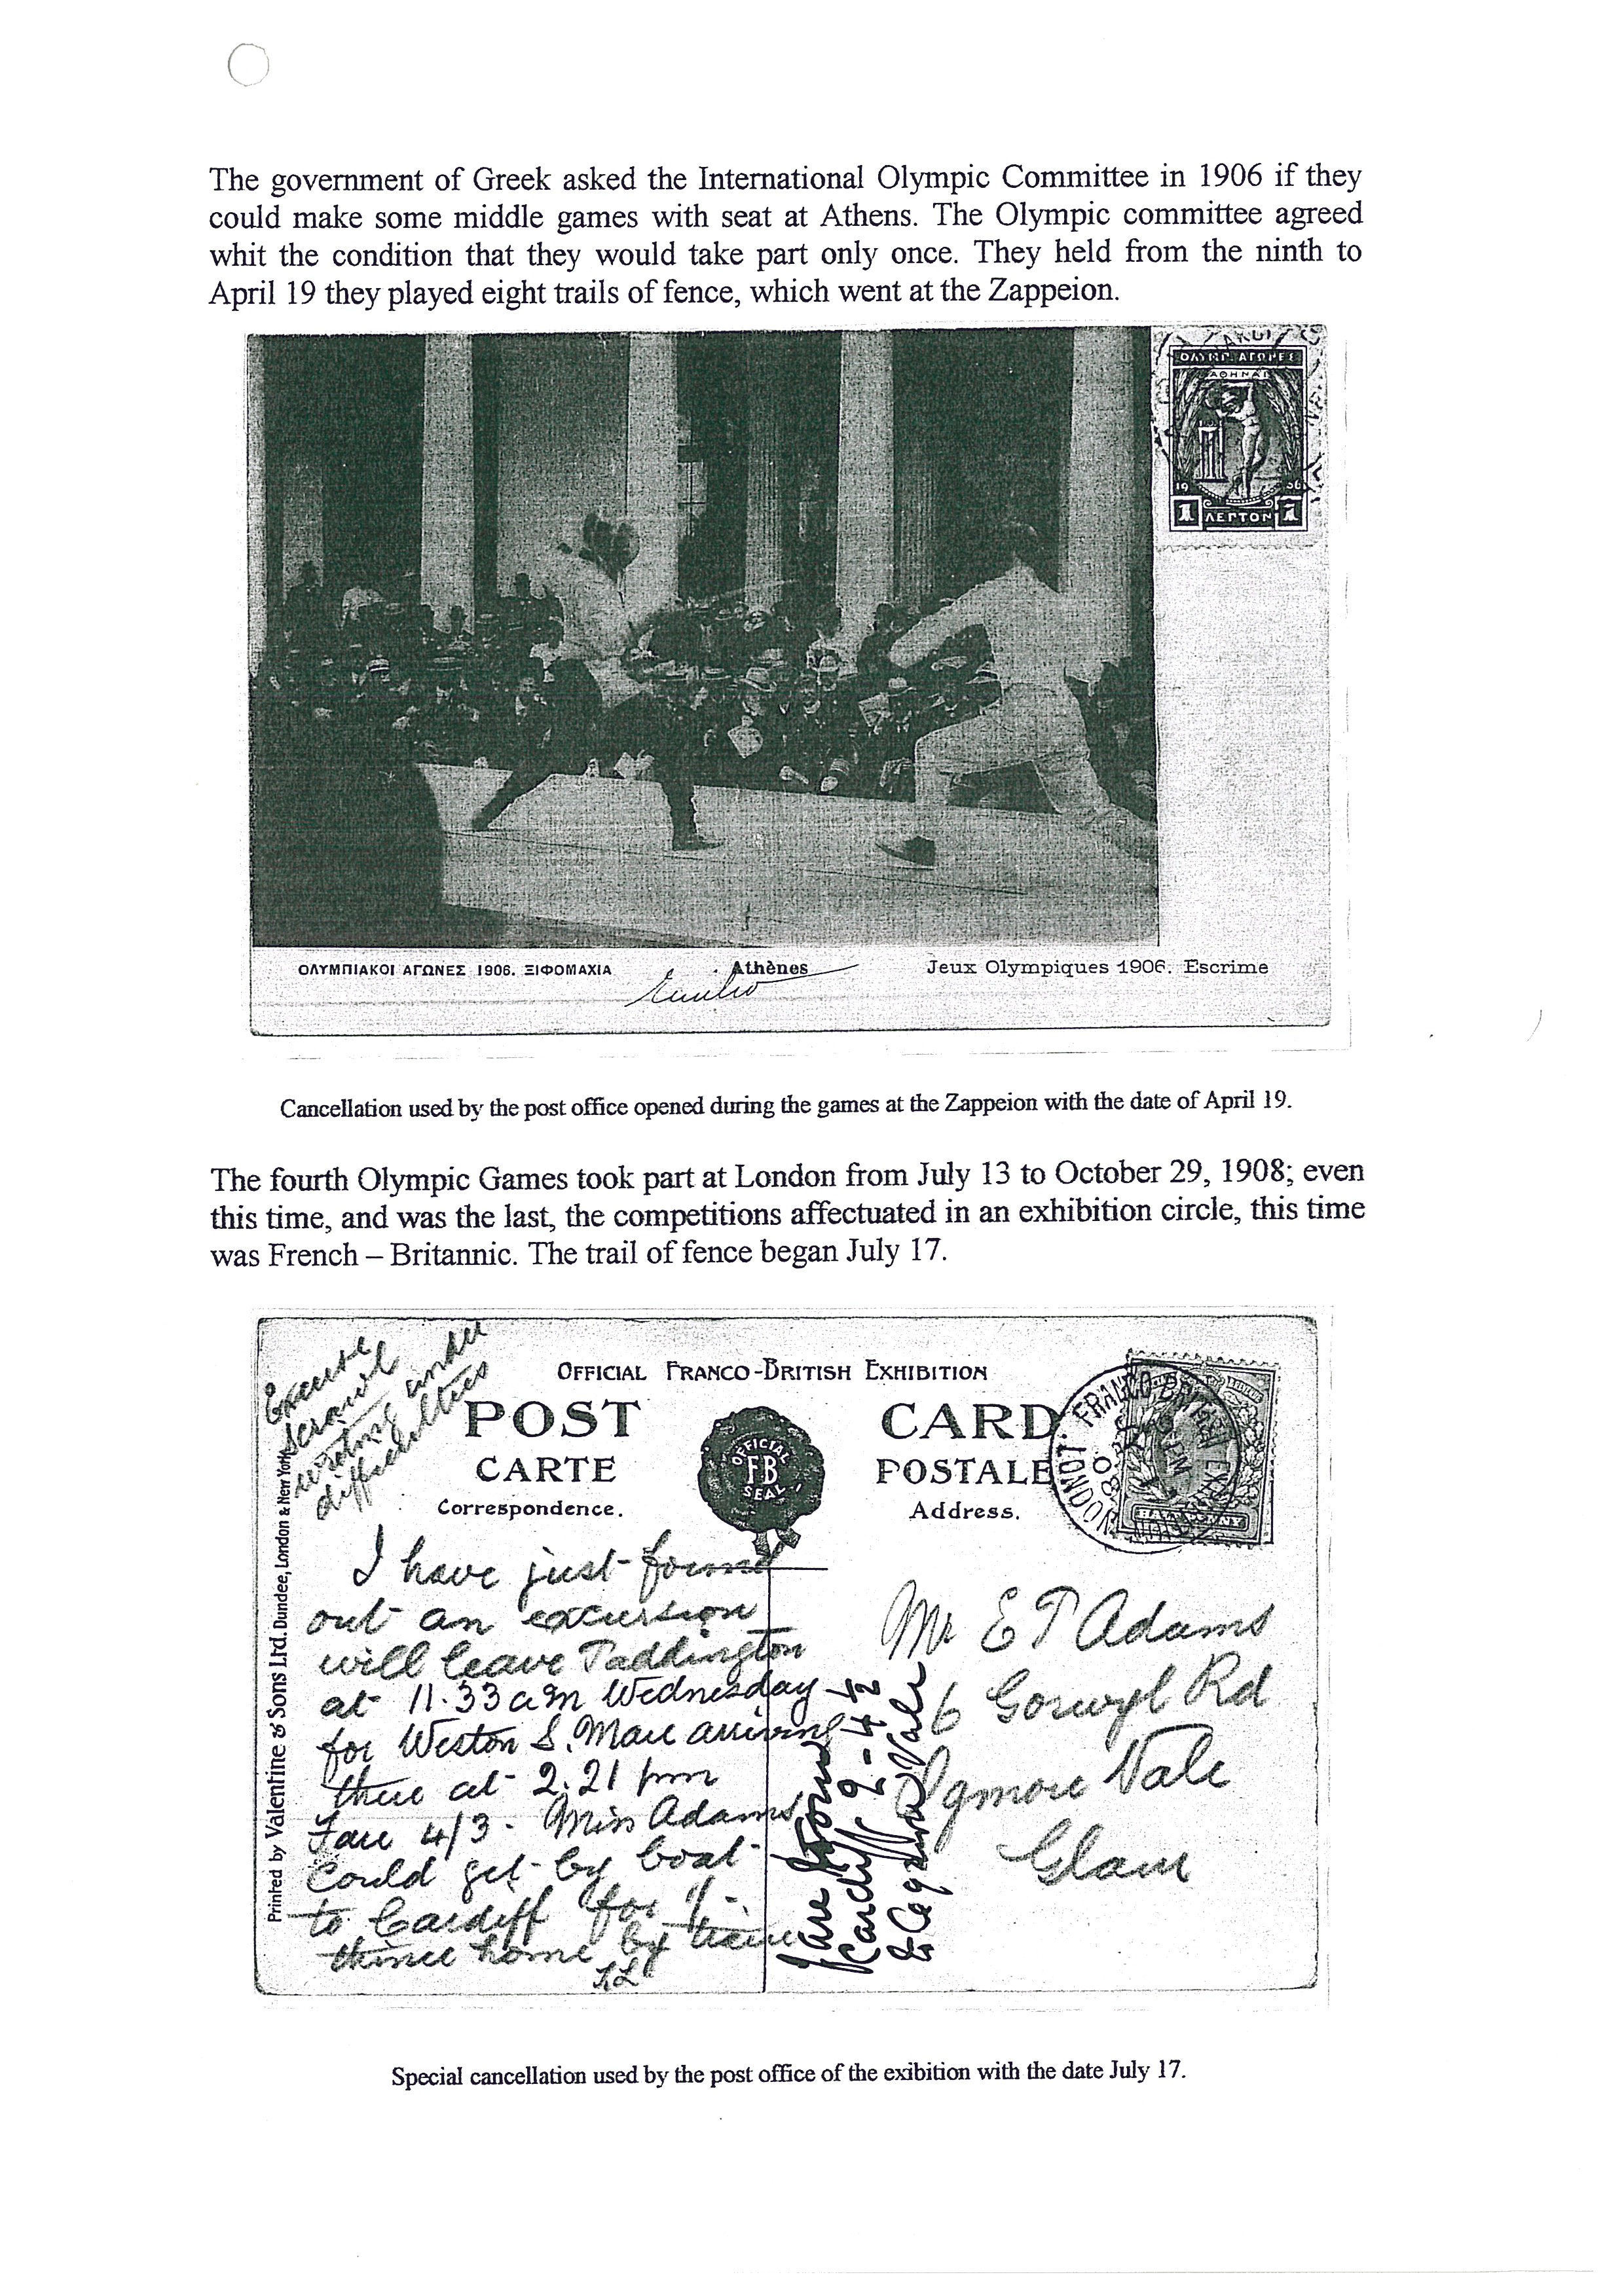 The government of Greek asked the International Olympic Committee in 1906 if they
could make some middle games with seat at Athens. The Olympic committee agreed
whit the condition that they would take part only once. They held from the ninth to
April 19 they played eight trails of fence, which went at the Zappeion.
ΟΛΥΜΠ. ΑΓΩΝΕΣ
ΑΘΗΝΑΙ
19 06
1 ΛΕΠΤΟΝ 1
ΟΛΥΜΠΙΑΚΟΙ ΑΓΩΝΕΣ 1906. ΞΙΦΟΜΑΧΙΑ
Athènes
Jeux Olympiques 1906. Escrime
Cancellation used by the post office opened during the games at the Zappeion with the date of April 19.
The fourth Olympic Games took part at London from July 13 to October 29, 1908; even
this time, and was the last, the competitions affectuated in an exhibition circle, this time
was French – Britannic. The trail of fence began July 17.
Excuse
scrawl
writing under
difficulties
OFFICIAL FRANCO-BRITISH EXHIBITION
POST CARD
CARTE POSTALE
Correspondence. Address.
OFFICIAL
FB
SEAL
LONDON FRANCO-BRITISH
HALFPENNY
Printed by Valentine & Sons Ltd. Dundee, London & New York
I have just found
out an excursion
will leave Paddington
at 11.33 am Wednesday
for Weston S. Mare arriving
there at 2.21 pm
Fare 4/3. Miss Adams
Could get by boat
to Cardiff for 1/-
thence home by train
Fare from
Cardiff 2-4½
to Ogmore Vale
Mr E T Adams
6 Gorwyl Rd
Ogmore Vale
Glam
Special cancellation used by the post office of the exibition with the date July 17.